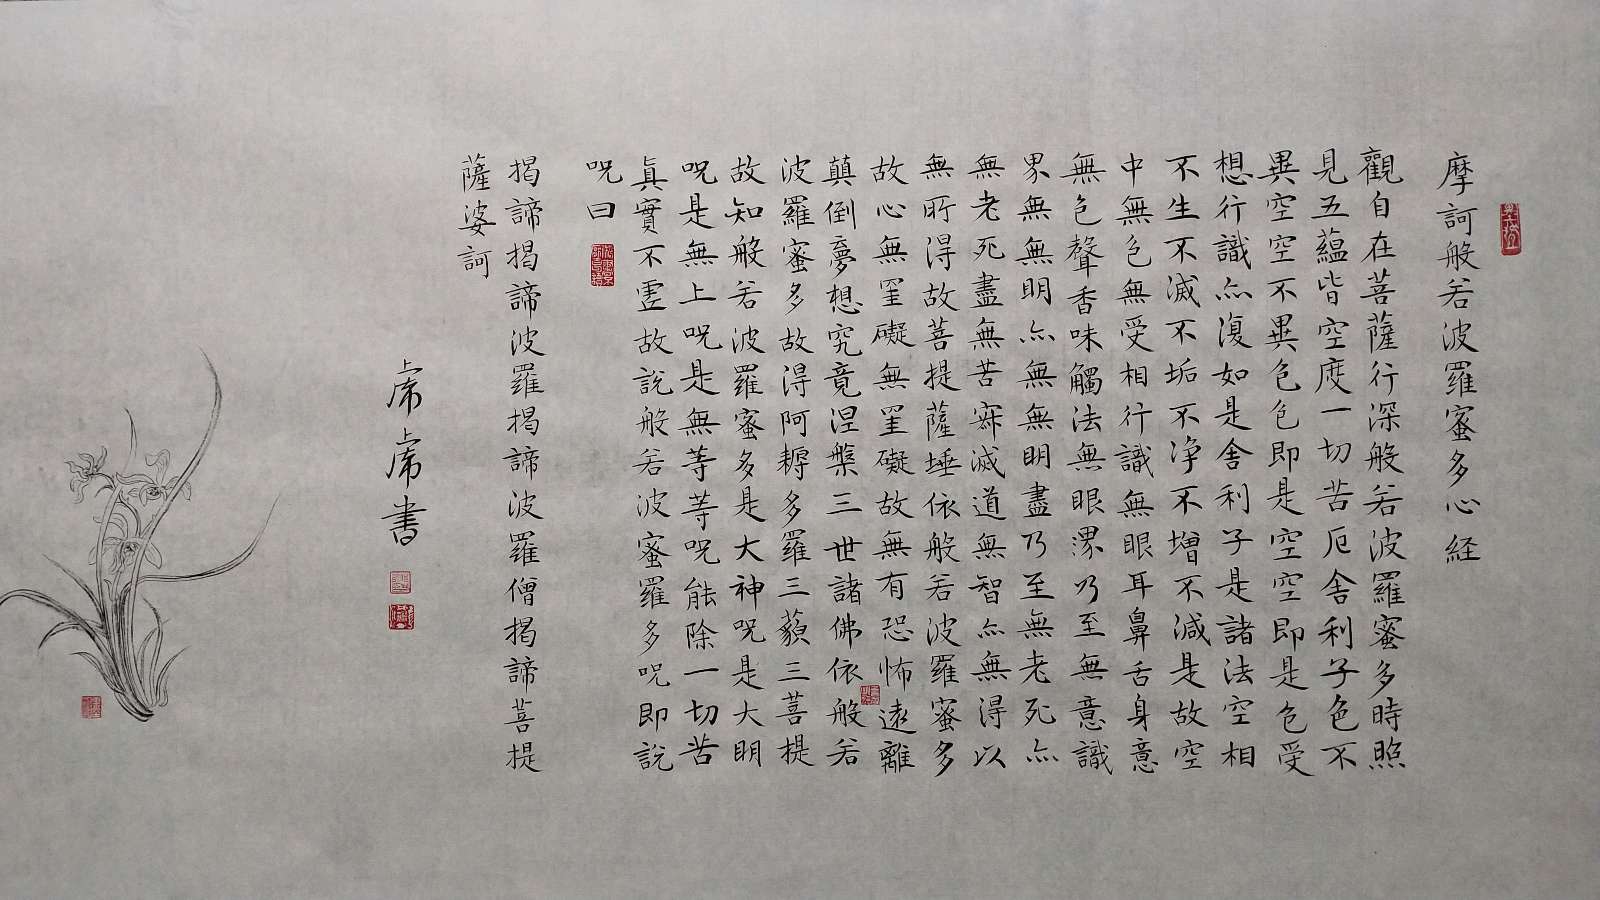 摩訶般若波羅蜜多心経
觀自在菩薩行深般若波羅蜜多時照
見五蘊皆空度一切苦厄舍利子色不
異空空不異色色即是空空即是色受
想行識亦復如是舍利子是諸法空相
不生不滅不垢不净不增不減是故空
中無色無受相行識無眼耳鼻舌身意
無色聲香味觸法無眼界乃至無意識
界無無明亦無無明盡乃至無老死亦
無老死盡無苦寂滅道無智亦無得以
無所得故菩提薩埵依般若波羅蜜多
故心無罣礙無罣礙故無有恐怖遠離
顛倒夢想究竟涅槃三世諸佛依般若
波羅蜜多故得阿耨多羅三藐三菩提
故知般若波羅蜜多是大神咒是大明
咒是無上咒是無等等咒能除一切苦
眞實不虛故說般若波蜜羅多咒即說
咒曰
揭諦揭諦波羅揭諦波羅僧揭諦菩提
薩婆訶
書